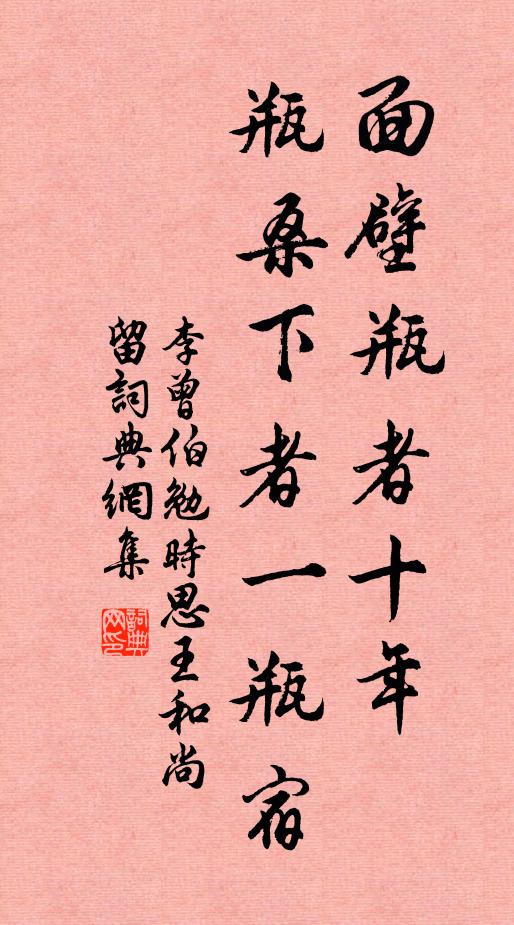 面壁瓶者十年
瓶桑下者一瓶宿
李曾伯勉時思王和尚
留詞典網集
詞典网印